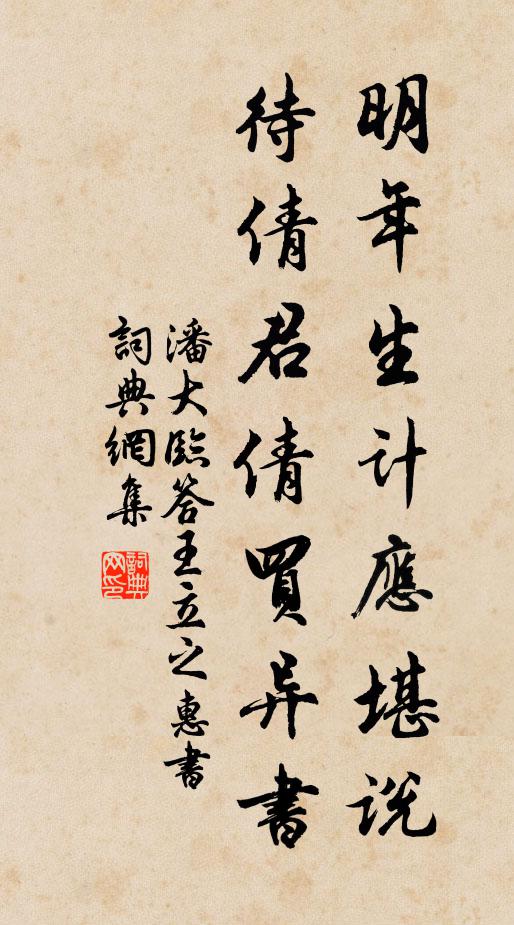 明年生計應堪說
待倩君倩買异書
潘大臨答王立之惠書
詞典網集
詞典網印